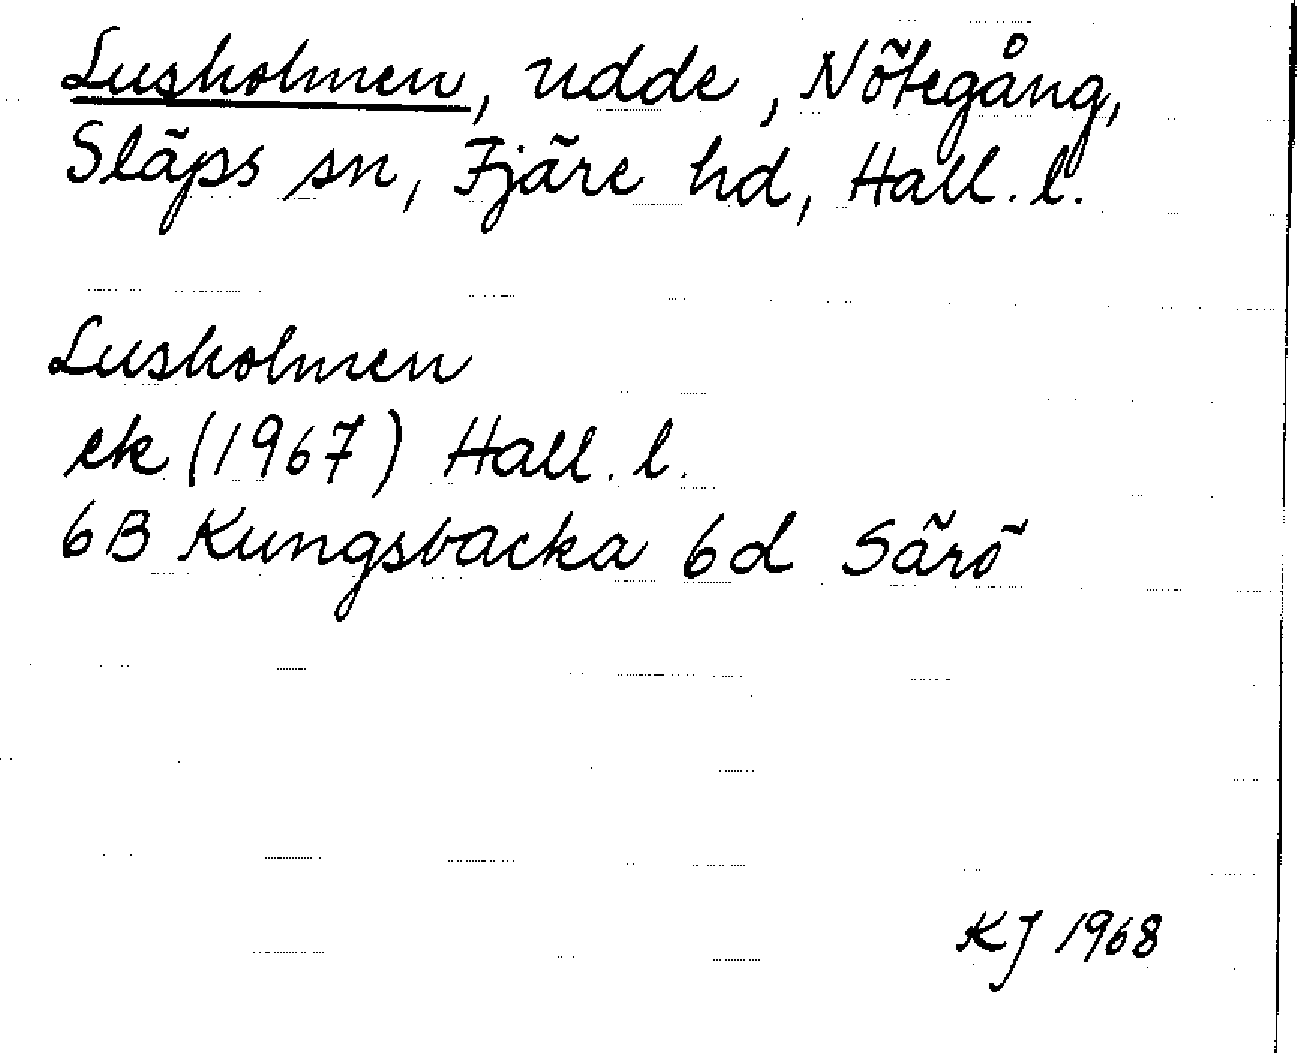 Lusholmen, udde, Nötegång,
Släps sn, Fjäre hd, Hall. l.
Lusholmen
ek (1967) Hall. l.
6B Kungsbacka 6d Särö
KJ 1968